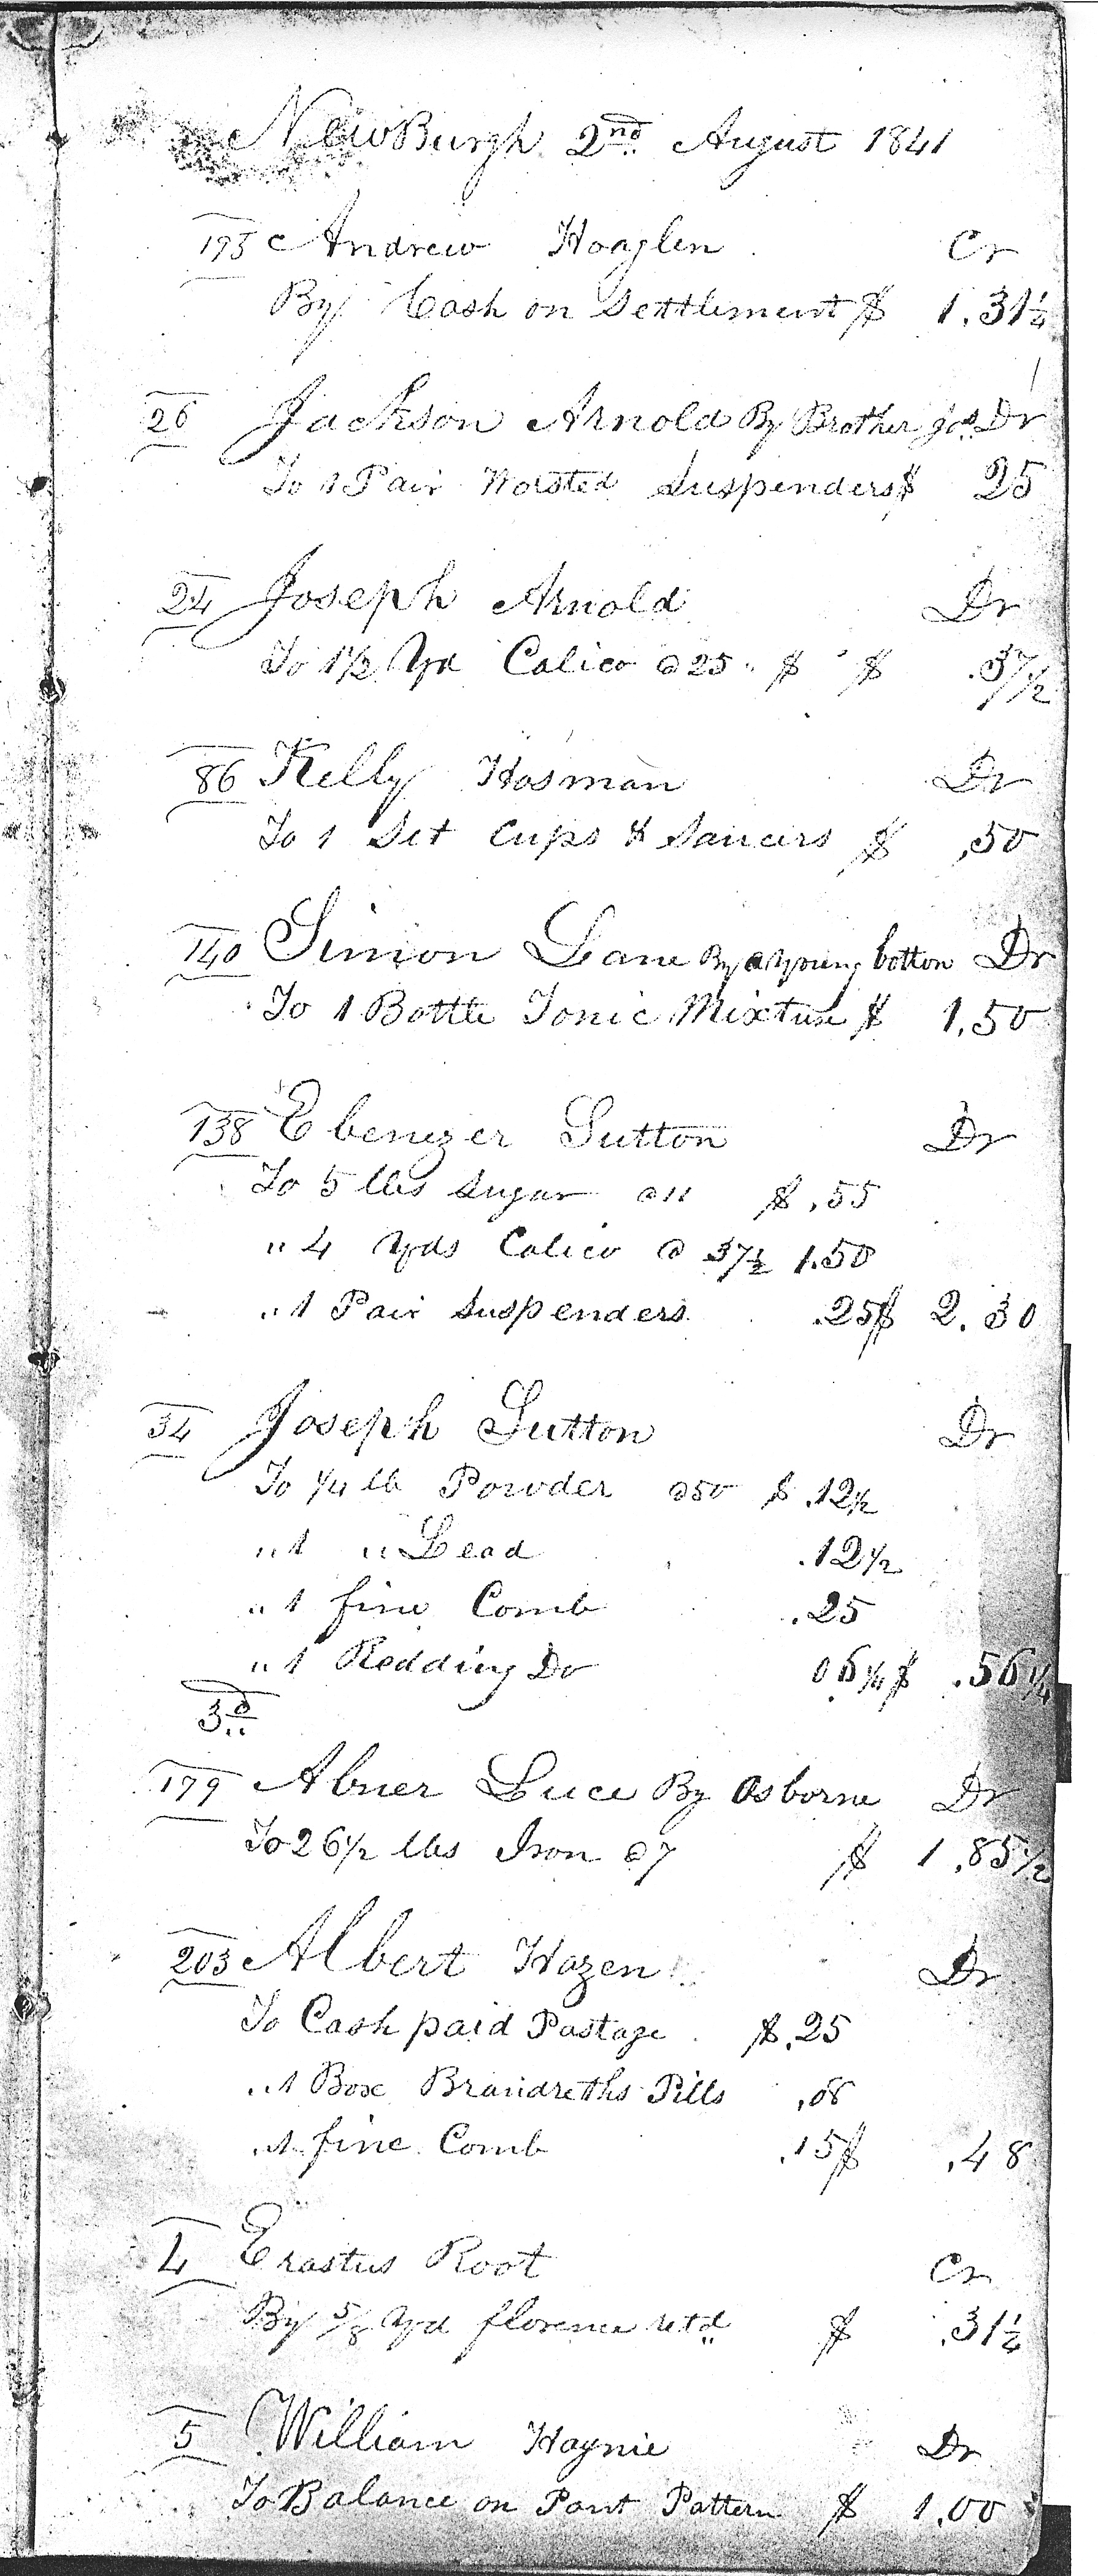 NewBurgh 2nd August 1841
195 Andrew Hoaglen Cr
By Cash on Settlement $ 1.31¼
26 Jackson Arnold By Brother Jos. Dr
To 1 Pair Worsted Suspenders $ 25
24 Joseph Arnold Dr
To 1½ Yd Calico @ 25 " $ " $ .37½
86 Kelly Hosman Dr
To 1 Set Cups & Saucers $ .50
140 Simon Lane By a young Dr
To 1 Bottle Tonic Mixture $ 1.50
138 Ebenezer Sutton Dr
To 5 lbs Sugar @ 11 $ .55
" 4 Yds Calico @ 37½ 1.50
" 1 Pair Suspenders .25 $ 2.30
34 Joseph Sutton Dr
To ¼ lb Powder @ 50 $ .12½
" 1 " Lead .12½
" 1 fine Comb .25
" 1 Redding Do 06¼ $ .56¼
3d
179 Abner Luce By Osborne Dr
To 26½ lbs Iron @ 7 $ 1.85½
203 Albert Hazen Dr
To Cash paid Postage $ .25
" 1 Box Brandreths Pills .08
" 1 fine Comb .15 $ .48
4 Erastus Root Cr
By 5/8 Yd florence retd $ .31¼
5 William Haynie Dr
To Balance on Pant Pattern $ 1.00